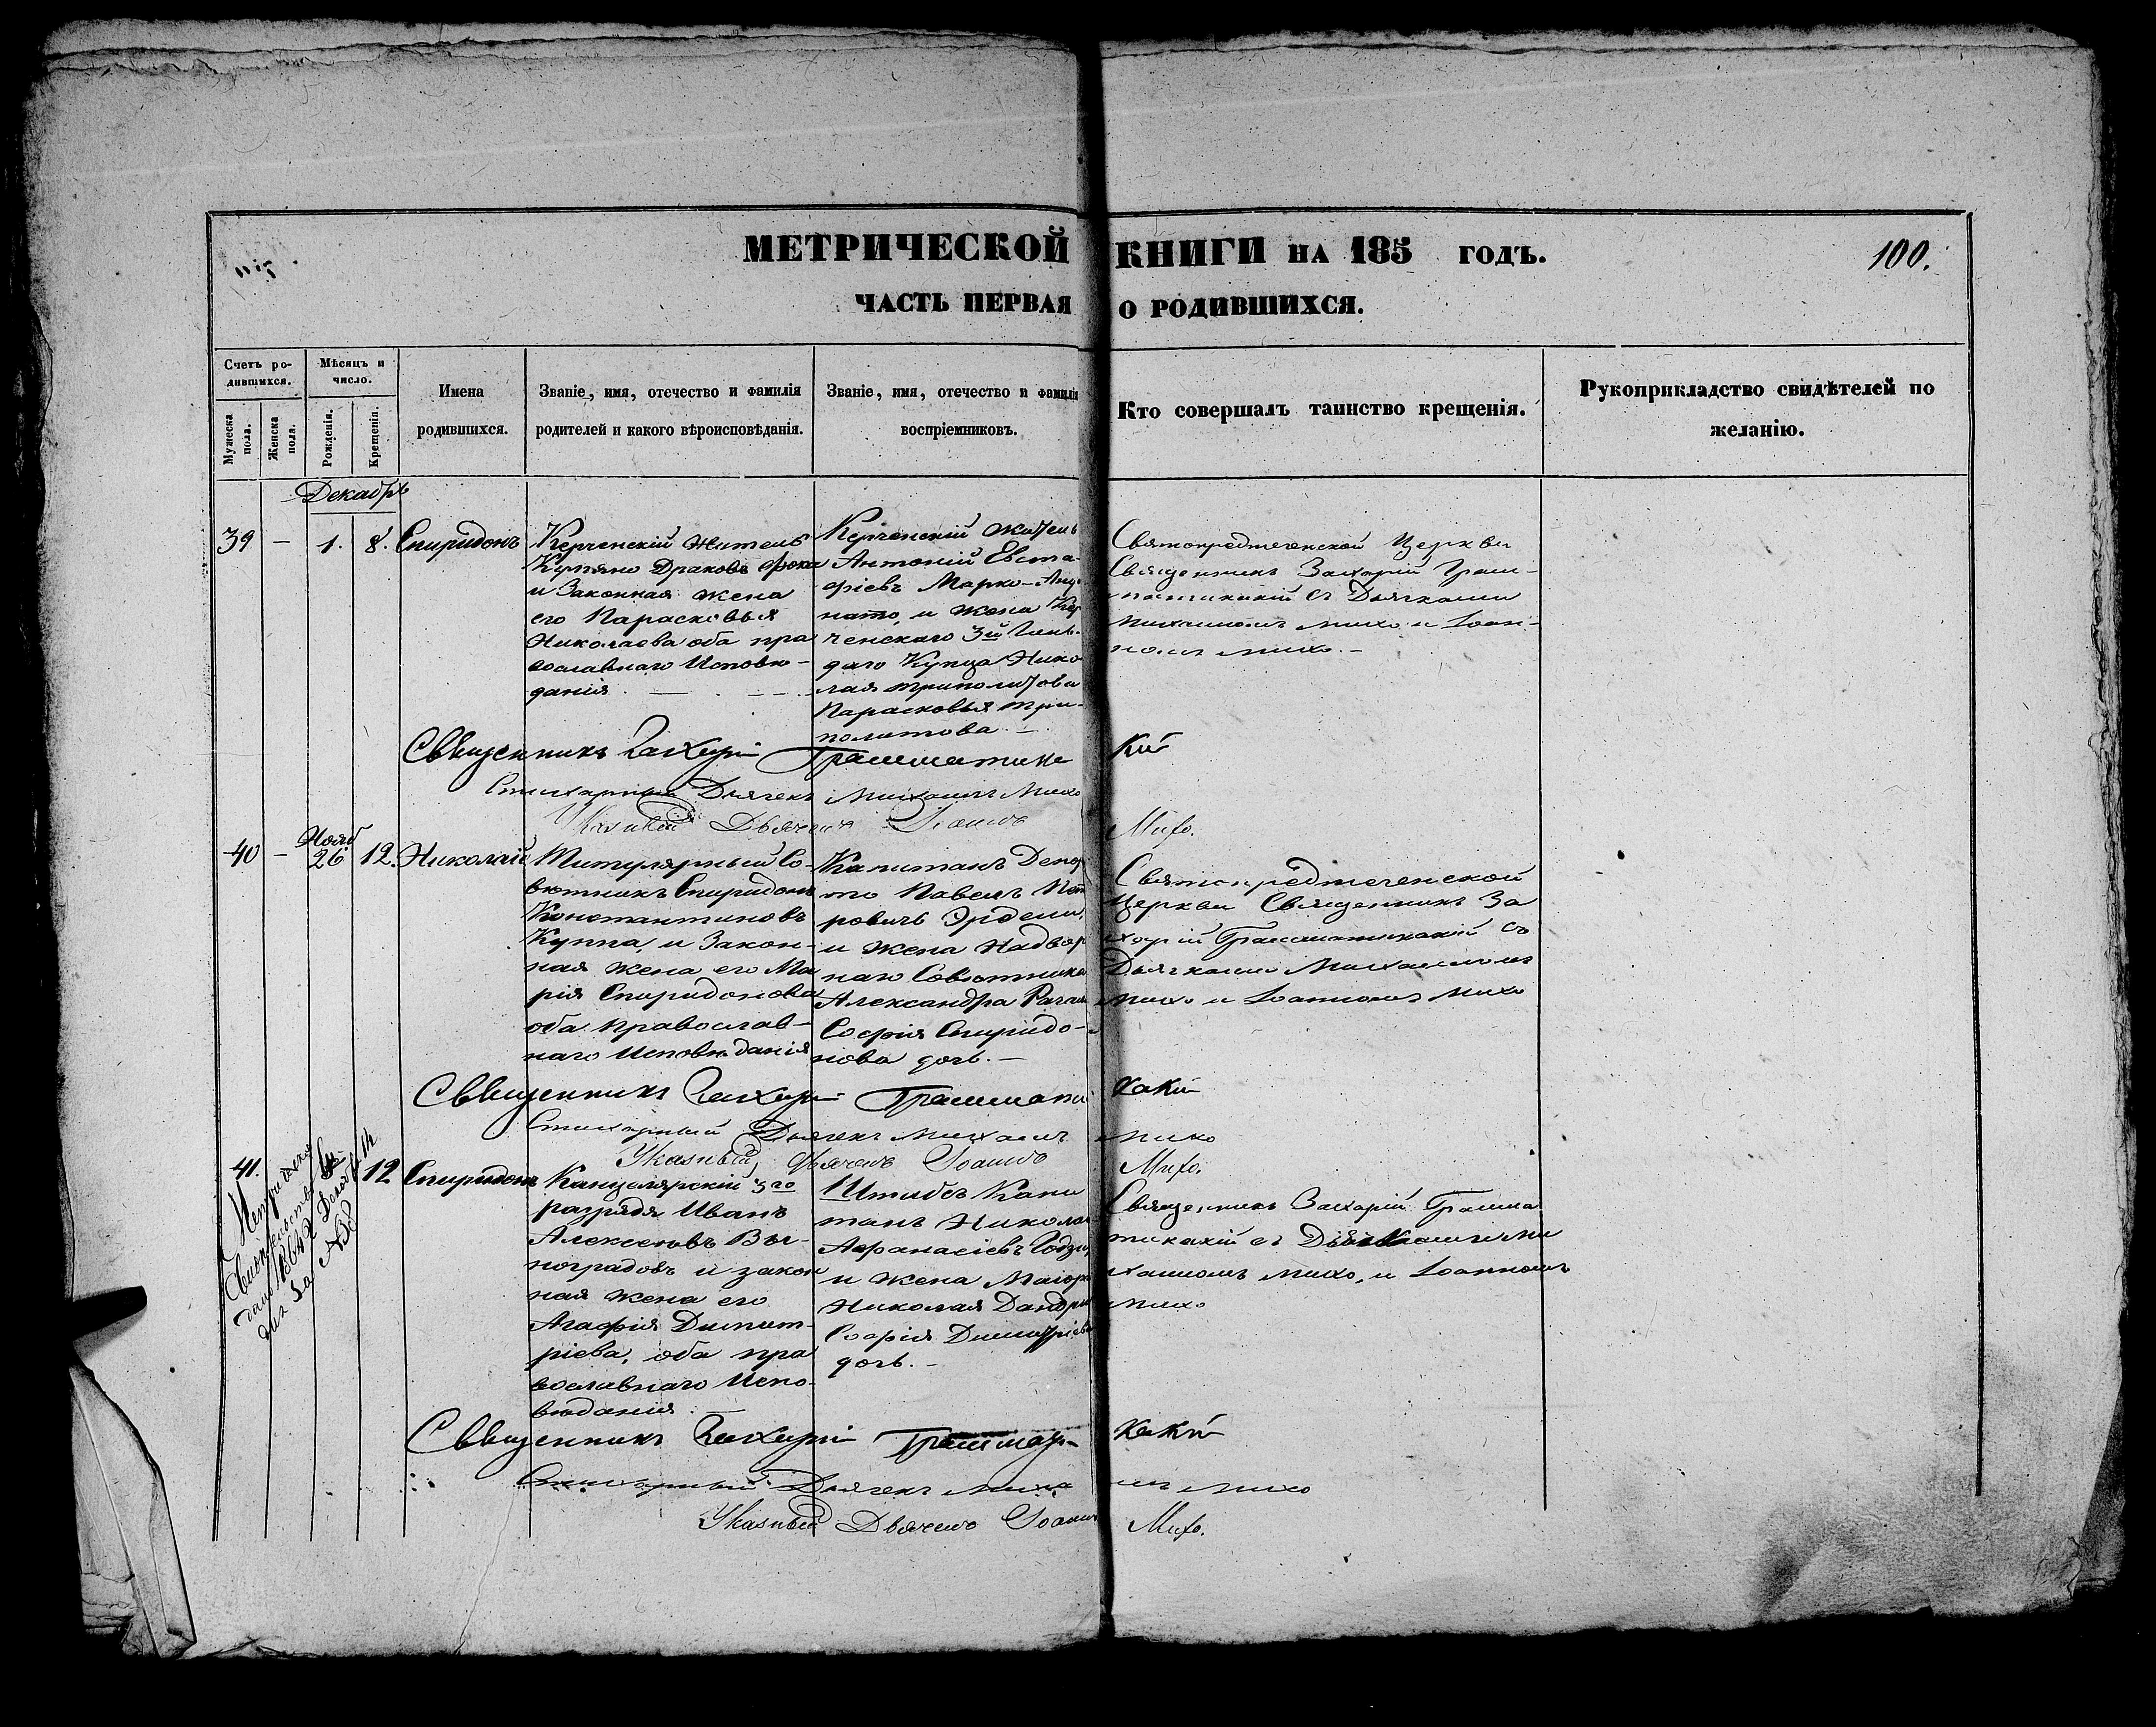 МЕТРИЧЕСКОЙ КНИГИ НА 185 ГОДЪ.
100.
ЧАСТЬ ПЕРВАЯ О РОДИВШИХСЯ.
Счетъ ро-
дившихся.
Мужеска пола.
Женска пола.
Мѣсяцъ и
число.
Рожденія.
Крещенія.
Имена
родившихся.
Званіе, имя, отечество и фамилія
родителей и какого вѣроисповѣданія.
Званіе, имя, отечество и фамилія
воспріемниковъ.
Кто совершалъ таинство крещенія.
Рукоприкладство свидѣтелей по
желанію.
Декабрь
39 — 1. 8. Спиридонъ
Керченскій житель
и Законная жена
его Парасковья
Николаева оба пра
вославнаго Исповѣ-
данія. —
Керченскій житель
Антоній Евста-
фіевъ Марко-
нато, и жена Кер
ченскаго 3й Гиль-
діи Купца Нико
лая Триполитова
Парасковья Три-
политова —
Святопредтеченской Церкви
Священникъ Захарій Грам-
матикакій съ Дьячками
Михаиломъ Михо и Іоан-
номъ Михо. —
Священникъ Захарій Грамматика кій
Стихарный Дьячекъ Михаилъ Михо
Указный Дьячекъ Іоаннъ Михо.
40 — Нояб 26 12. Николай
Титулярный Со-
вѣтникъ Спиридонъ
Константиновъ
Куппа, и Закон-
ная жена его Ма
рія Спиридонова
оба православ-
наго Исповѣданія
Капитанъ
Павелъ Пет
ровичъ Эрдели,
и жена Надвор
наго Совѣтника
Александра
Софія Спиридо-
нова дочь. —
Святопредтеченской
Церкви Священникъ За
харій Грамматикакій съ
Дьячками Михаиломъ
Михо и Іоанномъ Михо
Священникъ Захарій Граммати какій
Стихарный Дьячекъ Михаилъ Михо
Указный Дьячекъ Іоаннъ Михо.
41. 12 Спиридонъ
Метрическое
Свидѣтельство
дано 1864 Декабр 14
дня За № 58
Канцелярскій 3го
разряда Иванъ
Алексѣевъ Ви-
ноградовъ и закон
ная жена его
Агафія Димит-
ріева, оба пра
вославнаго Испо-
вѣданія. —
Штабсъ Капи
танъ Никола
Афанасіевъ
и жена Маіора
Николая
Софія Димитріева
дочь. —
Священникъ Захарій Грамма
тикакій съ Дьячками Ми
хаиломъ Михо, и Іоанномъ
Михо
Священникъ Захарій Граммати какій
Стихарный Дьячекъ Михаилъ Михо
Указный Дьячекъ Іоаннъ Михо.